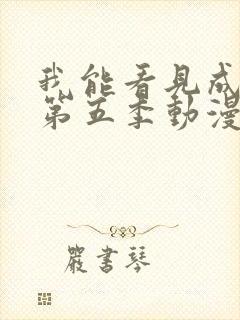 我能看見成
第五季動漫
嚴書琴